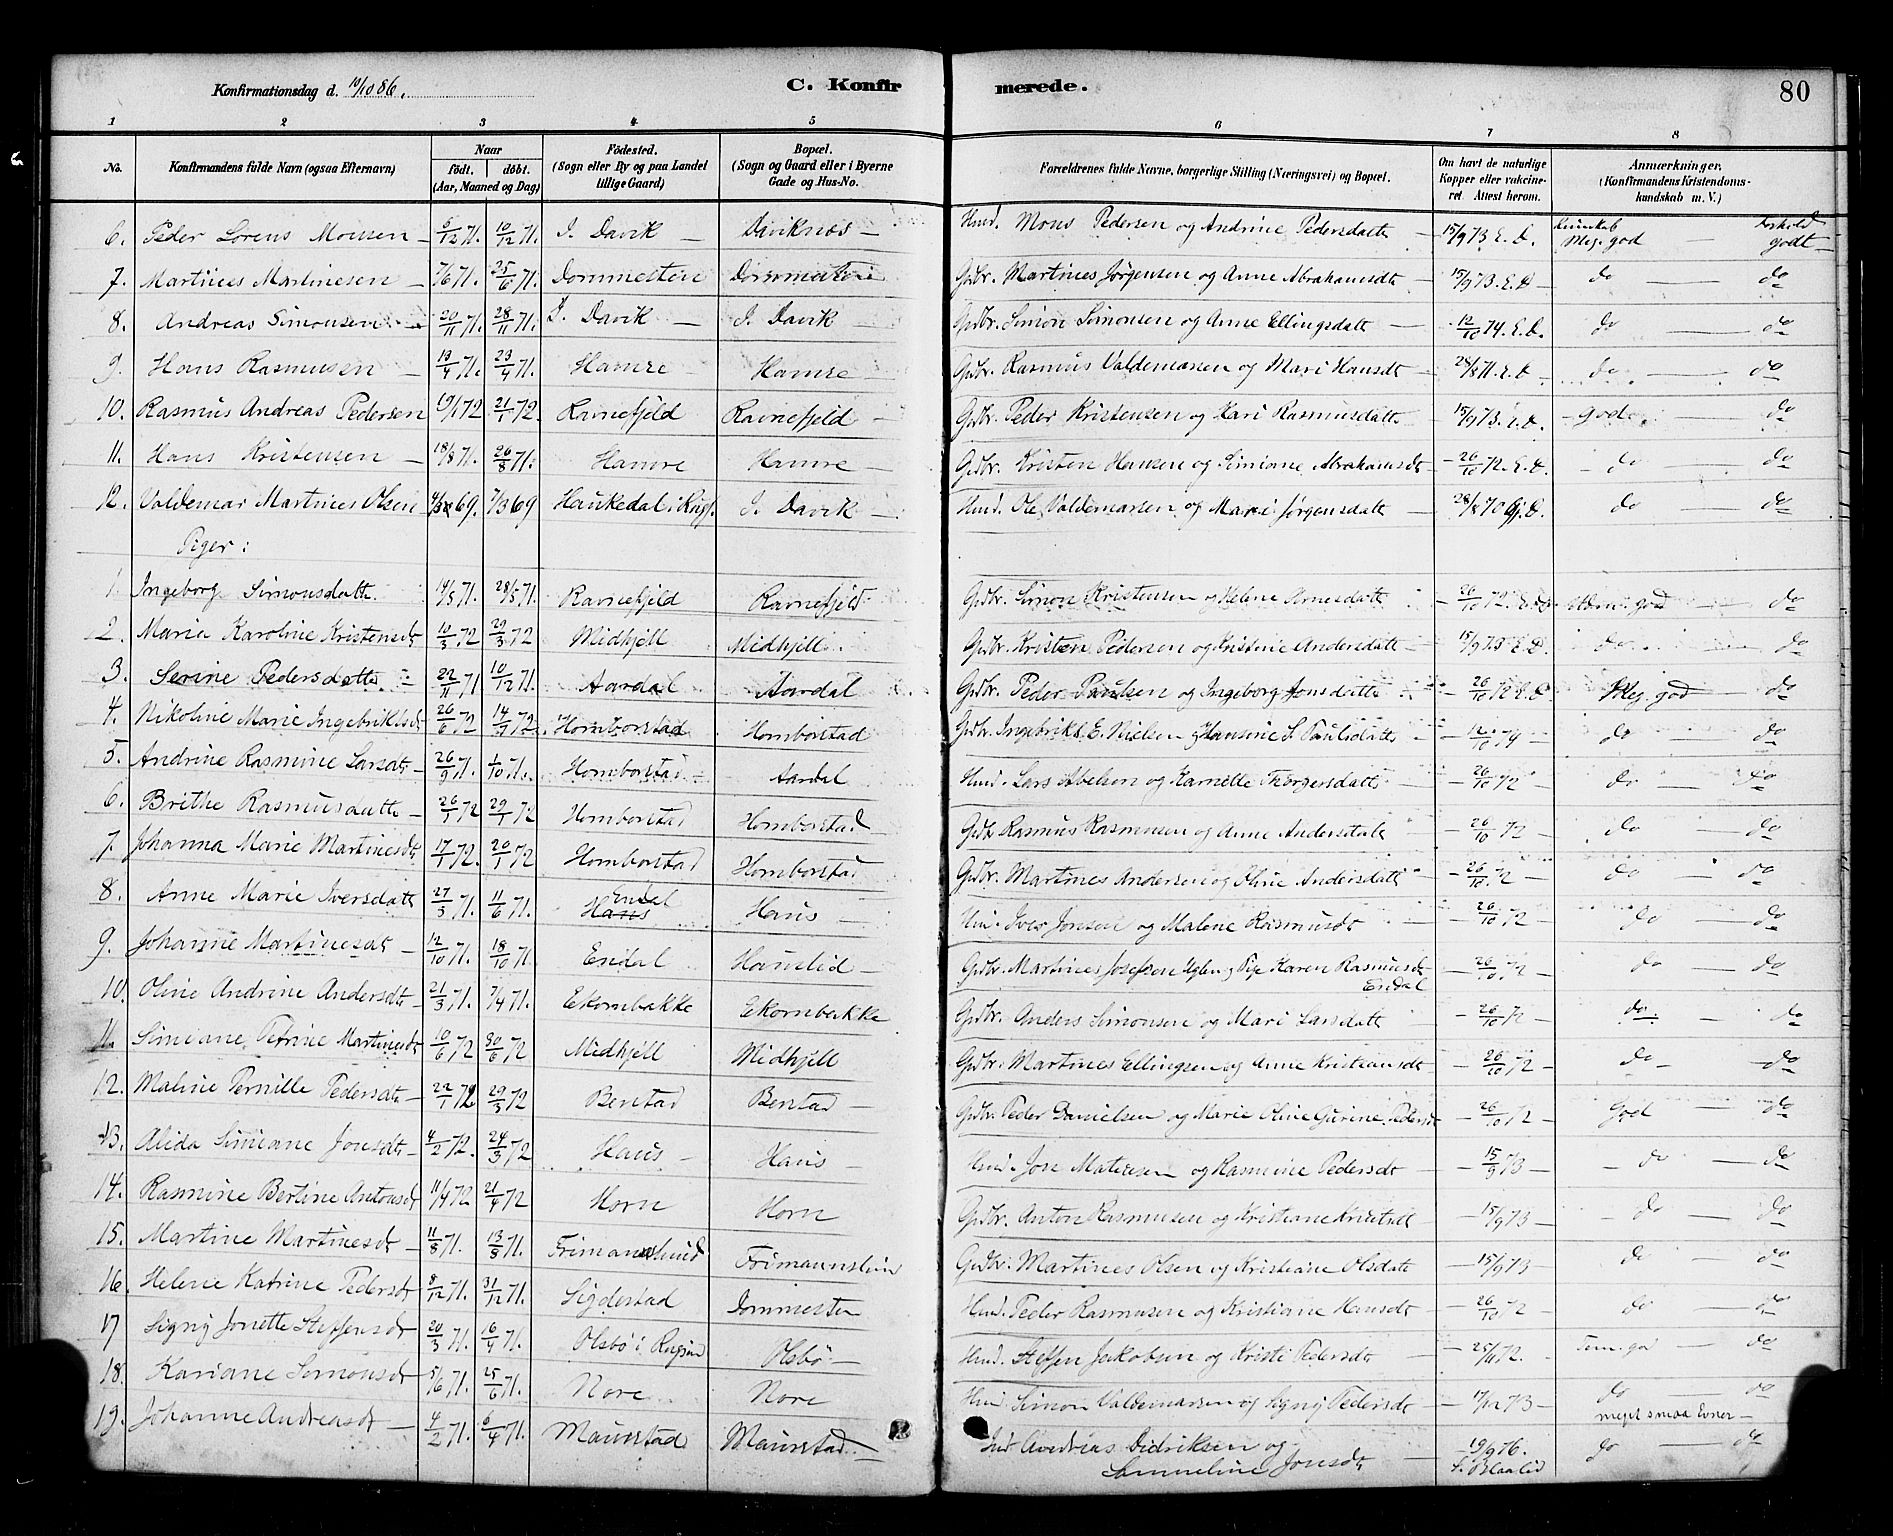 Konfirmationsdag d. 10/10 86.
C. Konfirmerede.
80
1 2 3 4 5 6 7 8
No. Konfirmandens fulde Navn (ogsaa Efternavn) Naar født. døbt. (Aar, Maaned og Dag) Fødested. (Sogn eller By og paa Landet tillige Gaard) Bopæl. (Sogn og Gaard eller i Byerne Gade og Hus-No. Forældrenes fulde Navne, borgerlige Stilling (Næringsvei) og Bopæl. Om havt de naturlige Kopper eller vakcineret Attest herom. Anmærkninger. (Konfirmandens Kristendomskundskab m. V.)
6. Peder Lorens Monsen 5/12 71. 10/12 71. I. Davik Daviknæs Hmd. Mons Pedersen og Andrine Pedersdatt 15/9 73 E. D. Kundskab Meg. god Forhold godt
7. Martines Martinesen 7/6 71. 25/6 71. Dommesten Dommesten Gdbr. Martines Jørgensen og Anne Abrahamsdt 15/9 73. E. D do do
8. Andreas Simonsen 20/11 71. 28/11 71. I. Davik I. Davik Gdbr. Simon Simonsen og Anne Ellingsdatt 12/10 74. E. D. do do
9. Hans Rasmusen 13/4 71. 23/4 71. Hamre Hamre Gdbr. Rasmus Valdemarsen og Mari Hansdt 28/8 71. E. D. do do
10. Rasmus Andreas Pedersen 19/1 72 21/1 72. Ravnefjeld Ravnefjeld Gdbr. Peder Kristensen og Kari Rasmusdatt 15/9 73. E. D. god do
11. Hans Kristensen 18/8 71. 26/8 71. Hamre Hamre Gdbr. Kristen Hansen og Simiane Abrahamsdt 26/10 72. E. D. do do
12. Valdemar Martines Olsen 69. 7/3 69 Haukedal i Rugs. I. Davik Hmd. Ole Valdemarsen og Mari Jørgensdatt 28/8 70 G. D. do do
Piger:
1. Ingeborg Simonsdatt. 14/5 71. 28/5 71. Ravnefjeld Ravnefjeld Gdbr. Simon Kristensen og Helene Arnesdatt 26/10 72. E. D. god do
2. Marie Karoline Kristensdt 10/3 72 29/3 72 Midhjell Midhjell Gdbr. Kristen Pedersen og Kristine Andersdatt 15/9 73 E. D. do do
3. Serine Pedersdatt 22/11 71 10/12 71. Aardal Aardal Gdbr. Peder Paulsen og Ingeborg Jonsdatt 26/10 72 E. D Meg. god do
4. Nikoline Marie Ingebriktsdt 26/6 72 14/7 72. Homborstad Homborstad Gdbr. Ingebrikt E. Nielsen og Hansine S. Paulsdatt 12/10 74 do do
5. Andrine Rasmine Larsdt 26/9 71. 1/10 71. Homborstad Aardal Hmd. Lars Abelsen og Karnette Thorgersdatt 26/10 72 do do
6. Brithe Rasmusdatt 26/1 72 29/1 72 Homborstad Homborstad Gdb Rasmus Rasmusen og Anne Andersdatt 26/10 72 do do
7. Johanna Marie Martinesdt 17/1 72. 20/1 72 Homborstad Homborstad Gdbr. Martines Andersen og Oline Andersdatt 26/10 72 do do
8. Anne Marie Iversdatt 27/5 71. 11/6 71. Endal Haus Haus Hmd. Iver Jonsen og Malene Rasmusdt 26/10 72 do do
9. Johanne Martinesdt 12/10 71. 18/10 71 Endal Hamslid Gdbr. Martines Josefsen Uglen og Pige Karen Rasmusdt Endal 26/10 72 do do
10. Oline Andrine Andersdt 21/3 71. 7/4 71. Ekornbakke Ekornbakke Gdbr. Anders Simonsen og Mari Larsdatt 26/10 72 do. do
11. Simiane Petrine Martinesdt 10/6 72 30/6 72 Midhjell Midhjell Gdbr. Martines Ellingsen og Anne Kristiansdt 26/10 72 do do
12. Maline Pernille Pedersdt 22/1 72 29/3 72 Berstad Berstad Gdbr. Peder Danielsen og Marie Oline Gurine Pedersdt 26/10 72 God do
13. Alida Simiane Jonsdt 4/2 72. 24/3 72 Haus Haus Hmd. Jon Matiasen og Rasmine Pedersdt 15/9 73 do do
14. Rasmine Bertine Antonsdt 11/4 72 21/4 72 Horn Horn Gdbr. Anton Rasmusen og Kristiane Kristdt 15/9 73 do do
15. Martine Martinesdt 11/8 71. 13/8 71. Frimannslund Frimannslun Gdbr. Martines Olsen og Kristiane Olsdatt 15/9 73 do do
16. Helene Katrine Pedersdt 8/12 71. 31/12 71. Sigdestad Dommesten Hmd. Peder Rasmusen og Kristiane Hansdt 26/10 72 do do
17 Signy Jonette Steffensdt 20/3 71. 16/4 71. Olsbø i Rugsund Olsbø Hmd. Steffen Jakobsen og Kristi Pedersdt 25/11 72. Tem. god do
18. Kariane Simonsdt 5/6 71. 25/6 71. Nore Nore Hmd. Simon Valdemarsen og Signy Pedersdt 17/12 73 do do
meget smaa Evner
19. Johanne Andreasdt 4/2 71. 6/4 71. Maurstad Maurstad Ind. Andreas Didriksen og Samueline Jonsdt 19/9 76. S. Blaalid do do